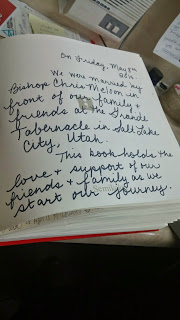 On Friday, May 8th
We were married by
Bishop Chris Nelson in
front of our family +
friends at the Grande
Tabernacle in Salt Lake
City, Utah.
This book holds the
love + support of our
friends + family as we
start our journey.